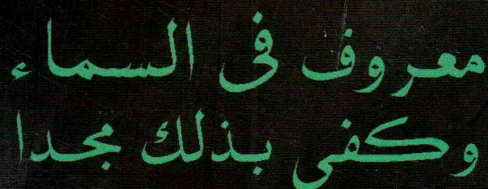 معروف فى السماء
وكفى بذلك مجدا